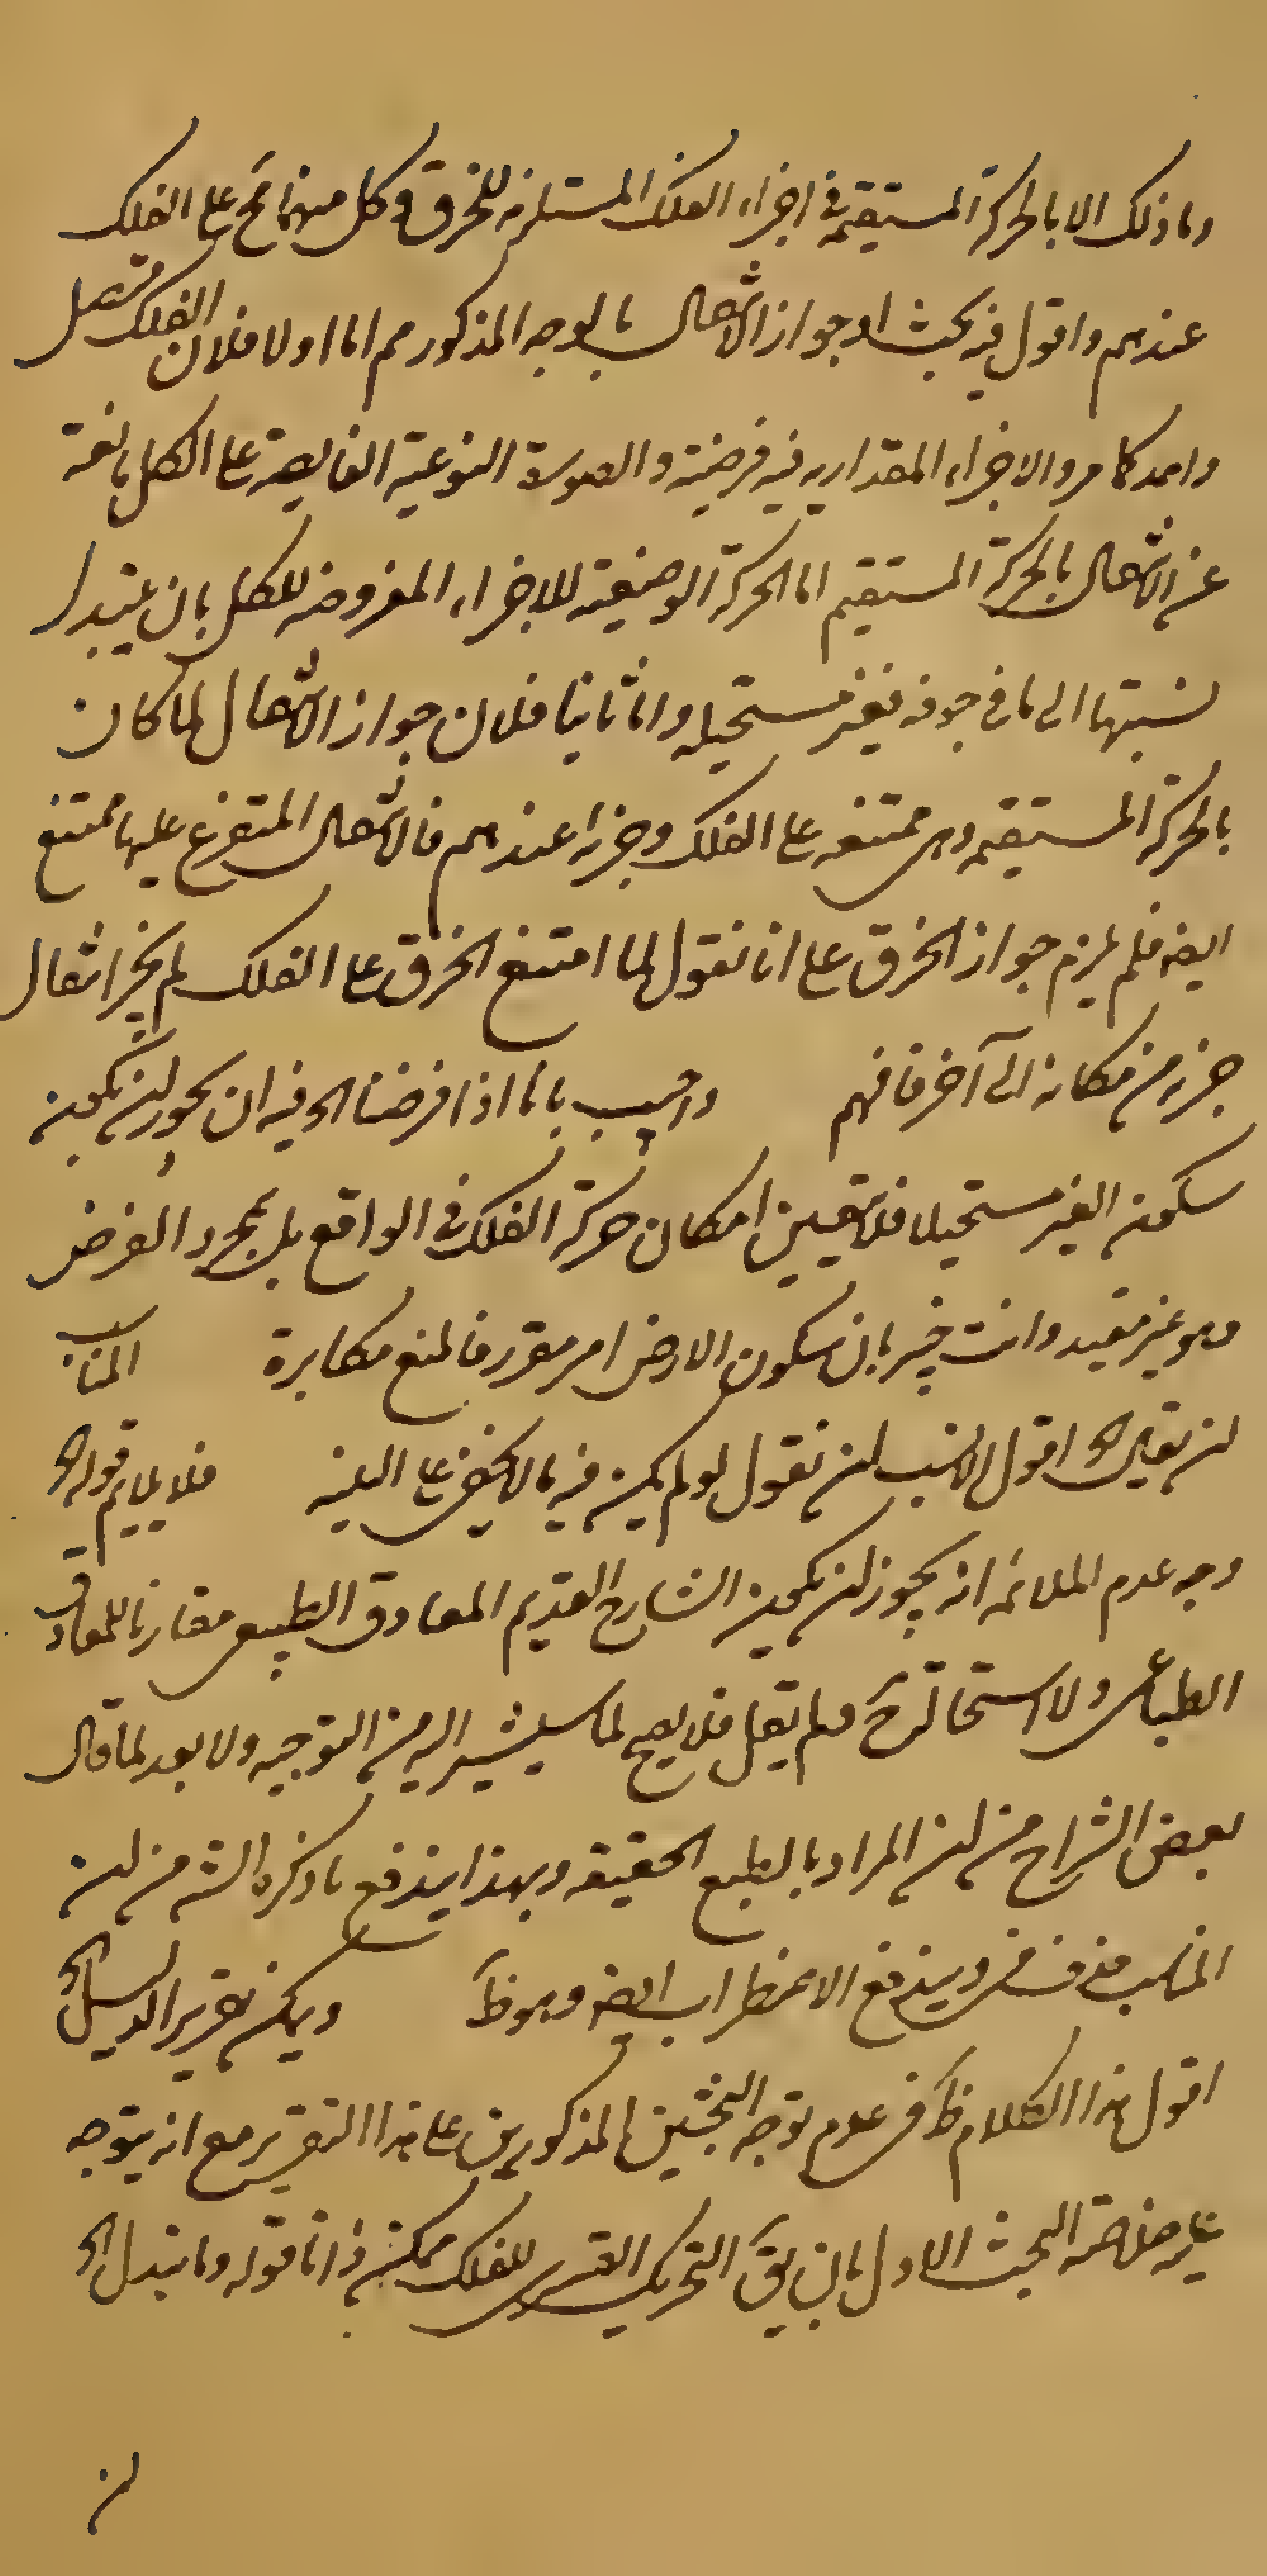 وما ذلك الا بالحركة المستقيمة في اجزاء الفلك المستلزمة للخرق وكل منهما مح على الفلك
عندهم واقول فيه بحث اذ جواز الانتقال بالوجه المذكور مم اما اولا فلان الفلك متصل
واحد كما مر والاجزاء المقدارية فيه فرضية والصورة النوعية الفايضة على الكل مانعة
عن الانتقال بالحركة المستقيم اما الحركة الوضعية للاجزاء المفروضة للكل بان يتبدل
نسبتها الى ما في جوفه فغير مستحيلة واما ثانيا فلان جواز الانتقال لما كان
بالحركة المستقيمة وهى ممتنعة على الفلك وجزئه عندهم فالانتقال المتفرع عليها ممتنع
ايضه فلم يلزم جواز الخرق على انا نقول لما امتنع الخرق على الفلك لم يجز انتقال
جزء من مكانه الى آخر فافهم واجيب بانا اذا فرضنا الخ فيه ان يجوز ان يكون
سكون الغير مستحيلا فلا يتعين امكان حركة الفلك في الواقع بل بمجرد الفرض
وهو غير مفيد وانت خبير بان سكون الارض امر مقرر فالمنع مكابرة المناسب
ان يقال الخ اقول الانسب ان نقول لو لم يكن فيه ما لا يخفى على البليه فلا يلايم قوله الخ
وجه عدم الملائمة انه يجوز ان يكون الشارح القديم المعاوق الطبيعى مقارنا للمعاوق
الطباعى ولا استحالة ح ولم يقل فلا يصح لما سيشير اليه من التوجيه ولا بعد لما قال
بعض الشراح من ان المراد بالطبع الحقيقة وبهذا يندفع ما ذكره الشه من ان
المناسب ويندفع الاضطراب ايضه وهو ظ ويمكن تقرير الدليل الخ
اقول هذا الكلام ظ في عدم توجه البحثين المذكورين على هذا التقرير مع انه يتوجه
عليه خلاصة البحث الاول بان يق التحريك القسرى للفلك ممكن ذاتا قوله وما يتبدل الخ
ان